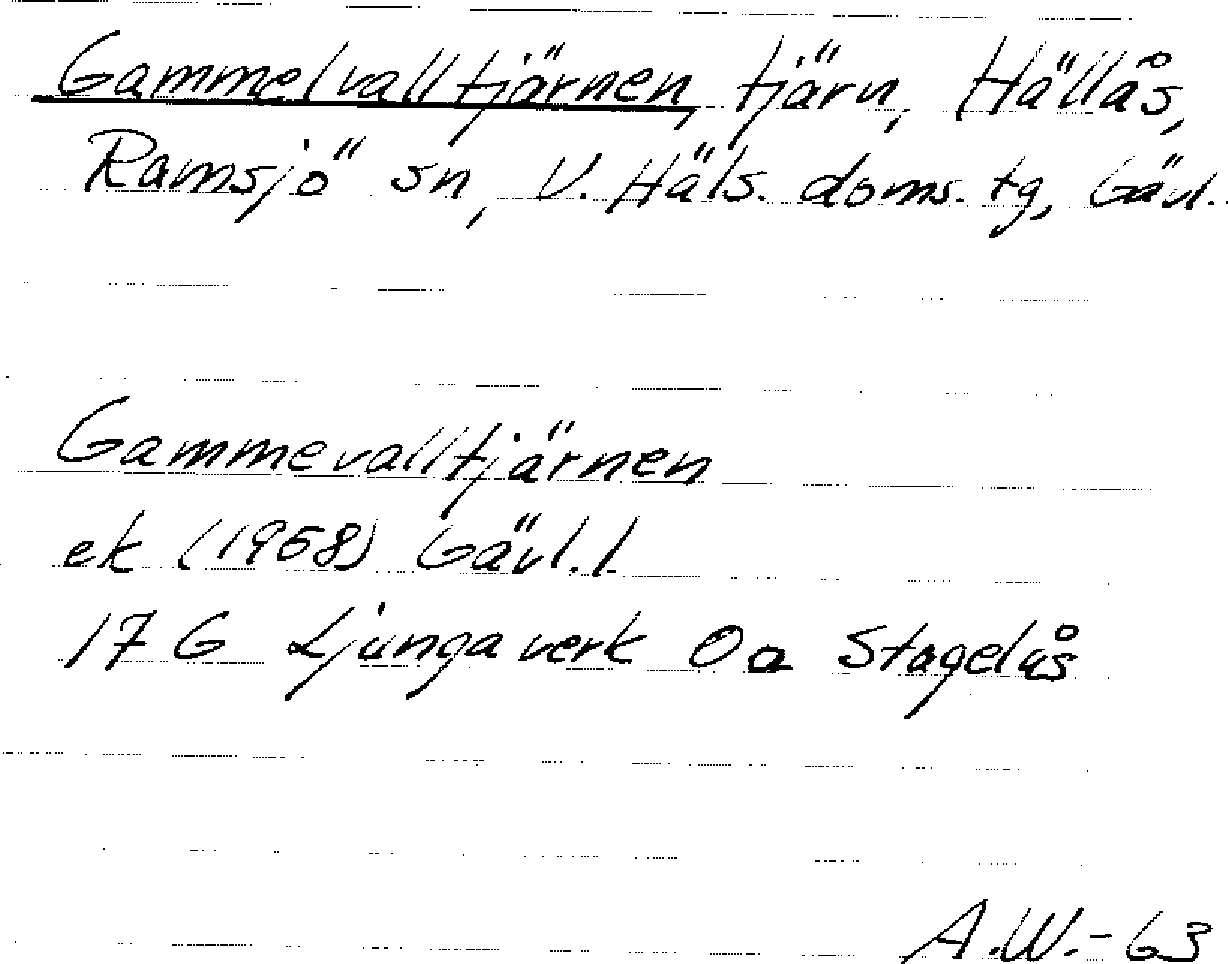 Gammelvalltjärnen, tjärn, Hällås,
Ramsjö sn, V. Häls. doms. tg, Gävl.
Gammevalltjärnen
ek (1958) Gävl. l
17 G Ljungaverk Oa Stagelås
A.W.-63